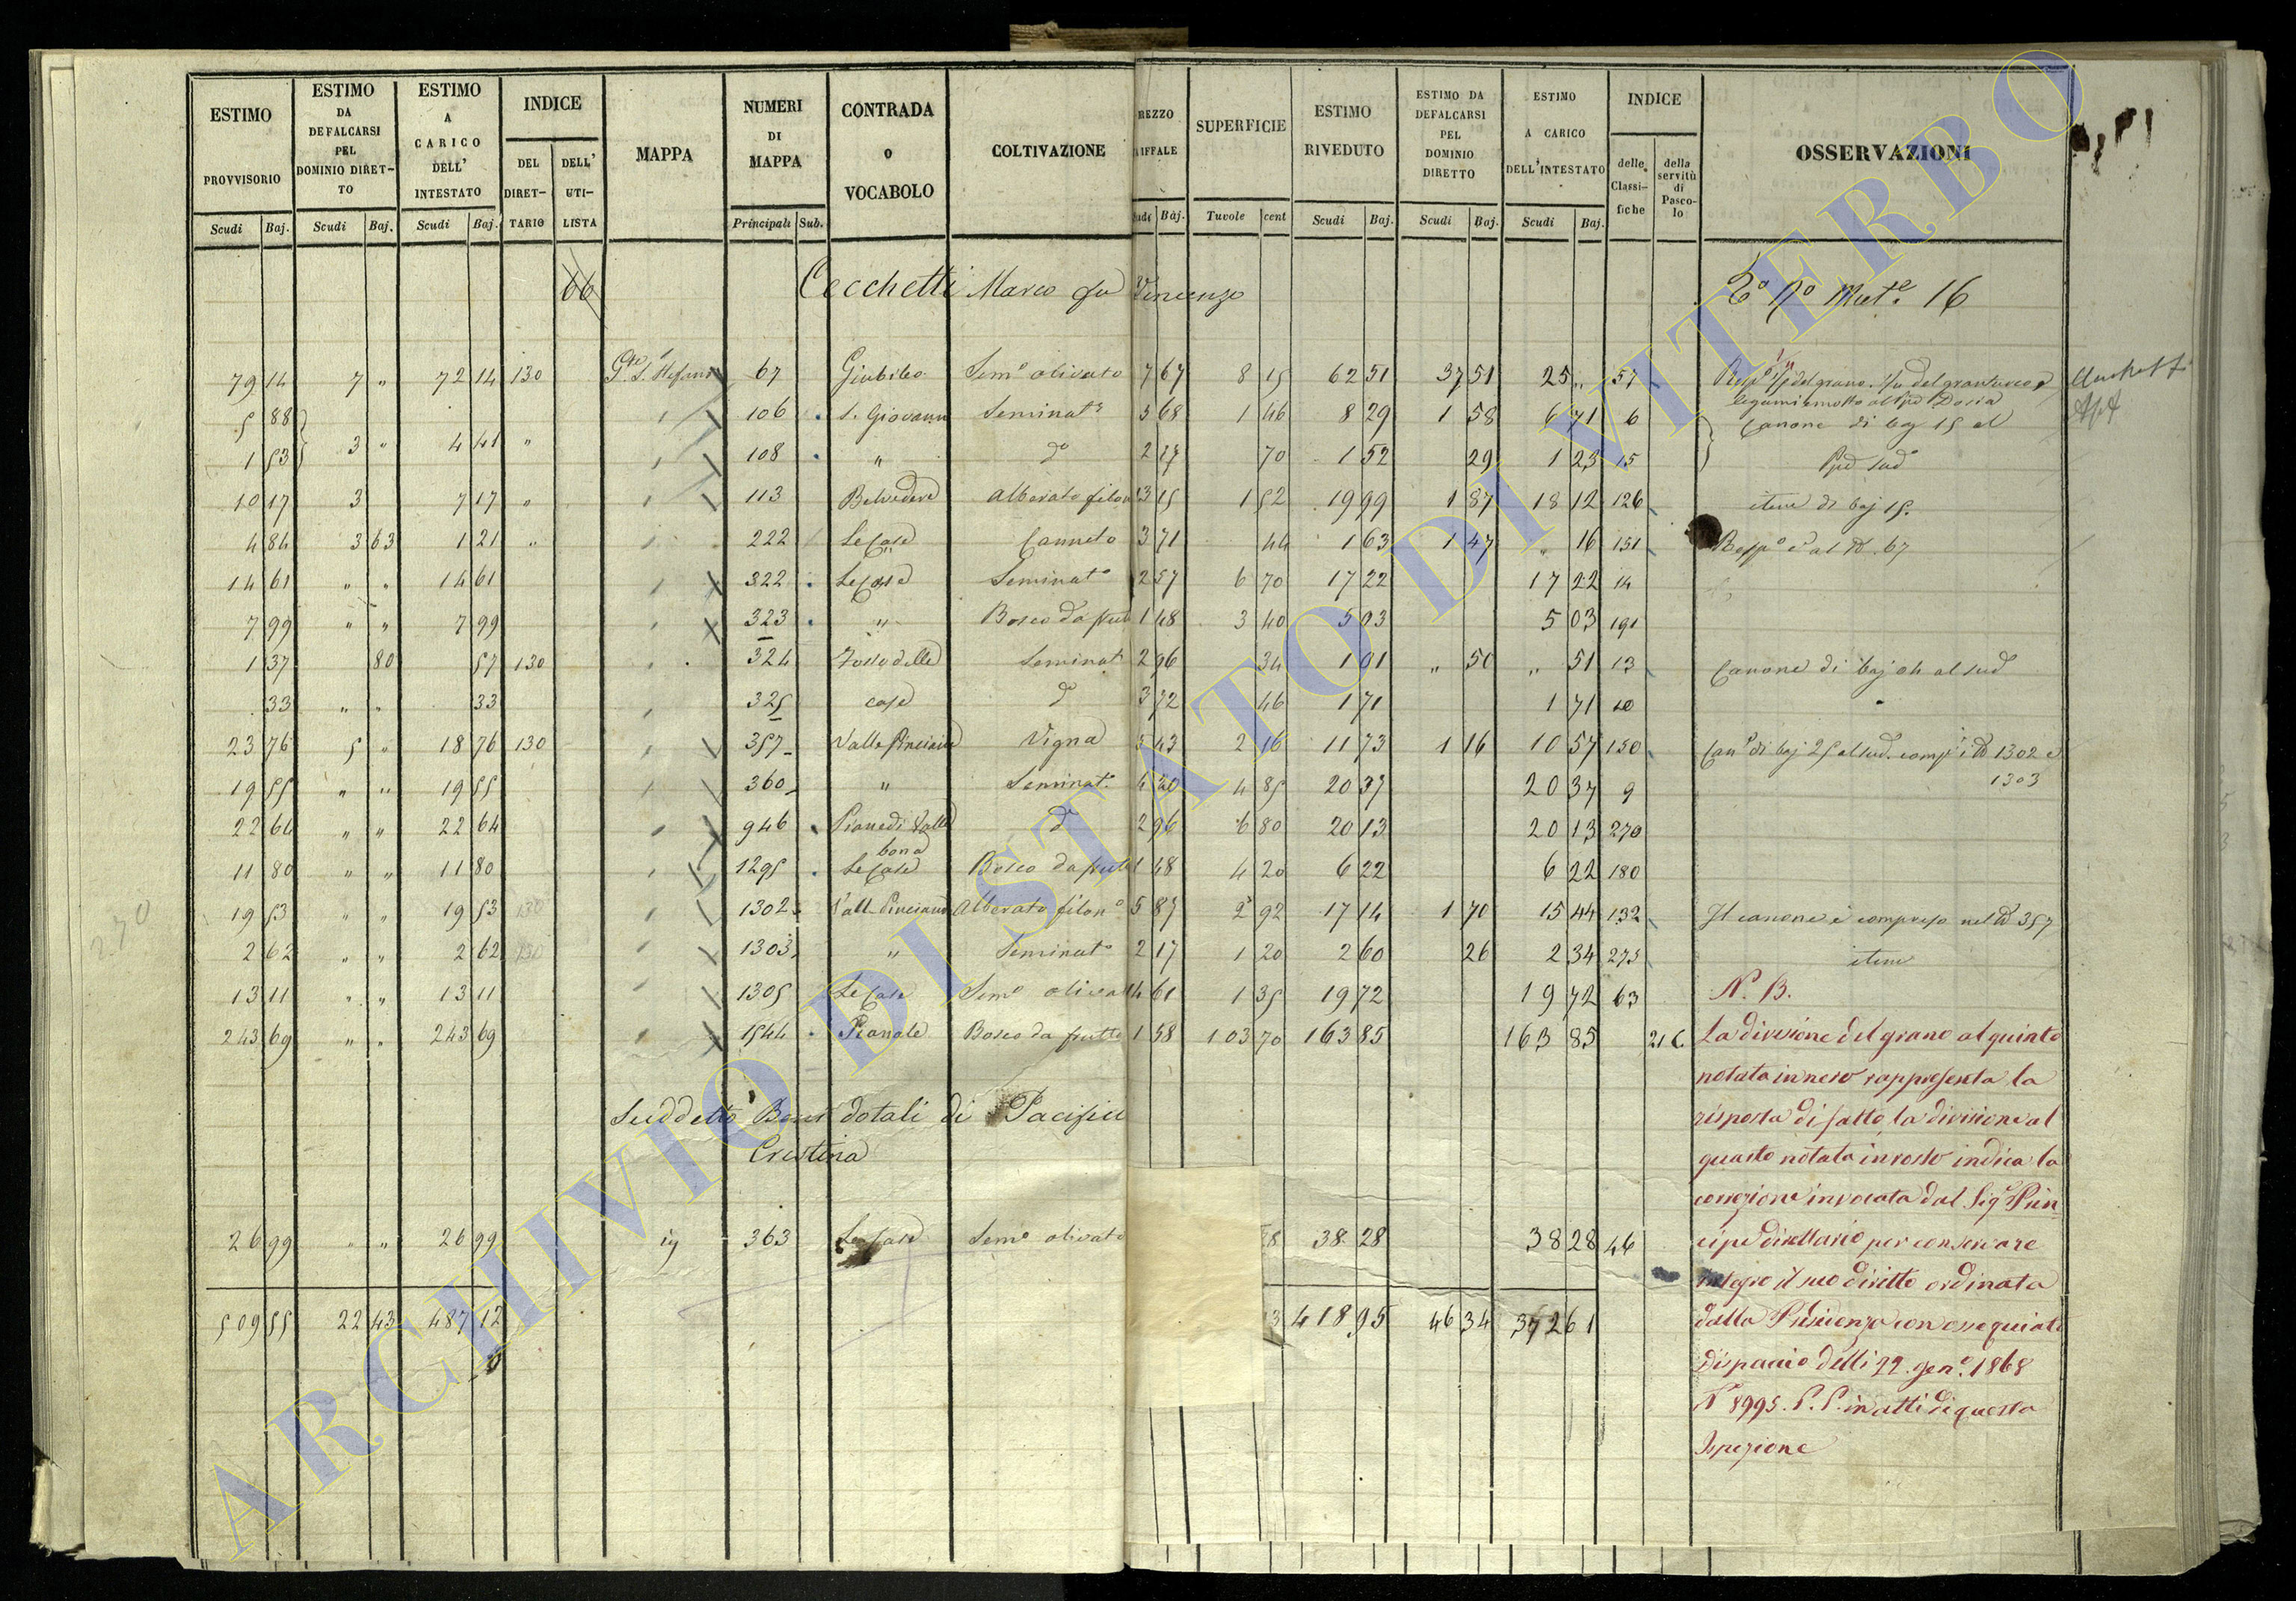 ESTIMO PROVVISORIO Scudi Baj.
ESTIMO DA DEFALCARSI PEL DOMINIO DIRET-TO Scudi Baj.
ESTIMO A CARICO DELL' INTESTATO Scudi Baj.
INDICE DEL DIRET-TARIO DELL' UTI-LISTA
MAPPA
NUMERI DI MAPPA Principali Sub.
CONTRADA O VOCABOLO
COLTIVAZIONE
REZZO RIFFALE Scudi Baj.
SUPERFICIE Tavole cent
ESTIMO RIVEDUTO Scudi Baj.
ESTIMO DA DEFALCARSI PEL DOMINIO DIRETTO Scudi Baj.
ESTIMO A CARICO DELL'INTESTATO Scudi Baj.
INDICE delle Classi-fiche della servitù di Pasco-lo
OSSERVAZIONI
66 Cecchetti Marco fu Vincenzo 16
79 14 7 " 72 14 130 67 Giubileo Semo olivato 7 67 8 15 62 51 37 51 25 " 57
5 88 106 S. Giovanni Seminato 5 68 1 46 8 29 1 58 6 71 6 Canone di baj 15 al
1 53 3 " 4 41 " 108 " do 2 17 70 1 52 29 1 23 15 sudo
10 17 3 7 17 " 113 Belvedere Alberato filon 13 15 1 52 19 99 1 87 18 12 126 item di baj 15.
4 84 3 63 1 21 " 222 Le Case Canneto 3 71 44 1 63 1 47 " 16 151 Rispo e al No. 67
14 61 " " 14 61 322 Le Case Seminato 2 57 6 70 17 22 17 22 14
7 99 " " 7 99 323 " Bosco da frutt 1 48 3 40 5 03 5 03 191
1 37 80 57 130 324 Fosso delle Seminat 2 96 34 1 01 " 50 " 51 13 Canone di baj 04 al sudo
33 " " 33 325 case do 3 72 46 1 71 1 71 10
23 76 5 " 18 76 130 357 Valle Pinciana Vigna 5 43 2 16 11 73 1 16 10 57 130 Cane di baj 25 al sud. comp i No 1302 e
1303
19 55 " " 19 55 360 " Seminato 4 20 4 85 20 37 20 37 9
22 64 " " 22 64 946 Piano di Valle bona do 2 96 6 80 20 13 20 13 270
11 80 " " 11 80 1295 Le Case Bosco da frutt 1 48 4 20 6 22 6 22 180
19 53 " " 19 53 130 1302 Valle Pinciana Alberato filono 5 87 2 92 17 14 1 70 15 44 132 Il canone è compreso nel No 357
2 62 " " 2 62 130 1303 " Seminato 2 17 1 20 2 60 26 2 34 275 item
13 11 " " 13 11 1305 Le Case Semo olivat 14 61 1 35 19 72 19 72 63
243 69 " " 243 69 1544 Pianale Bosco da frutto 1 58 103 70 163 85 163 85 216
Suddetto Beni dotali di Pacifici
Cristina
26 99 " " 26 99 363 Le Case Semo olivato 38 28 38 28 46
509 55 22 43 487 12 418 95 46 34 372 61
N. B.
La divisione del grano al quinto
notata in nero rappresenta la
risposta di fatto, la divisione al
quarto notata in rosso indica la
correzione invocata dal Sigr Prin-
cipe direttario per conservare
integro il suo diritto ordinata
dalla Presidenza con ossequiato
dispaccio delli 22. geno. 1868
No 8995. P. P. in atti di questa
Ispezione
ARCHIVIO DI STATO DI VITERBO